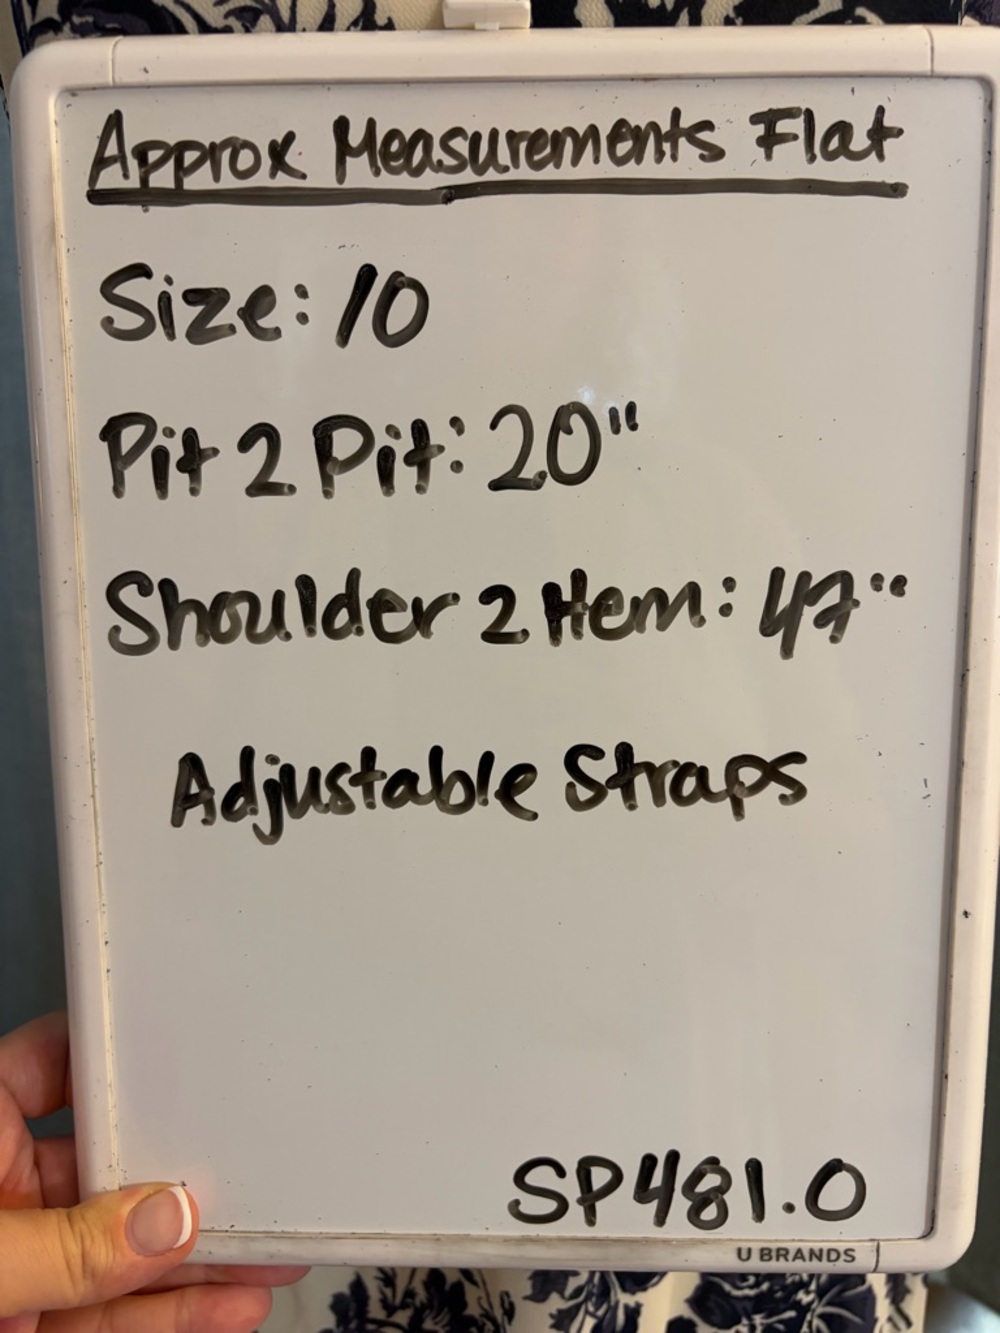 Approx Measurements Flat
Size: 10
Pit 2 Pit: 20"
Shoulder 2 Hem: 47"
Adjustable Straps
SP481.0
U BRANDS